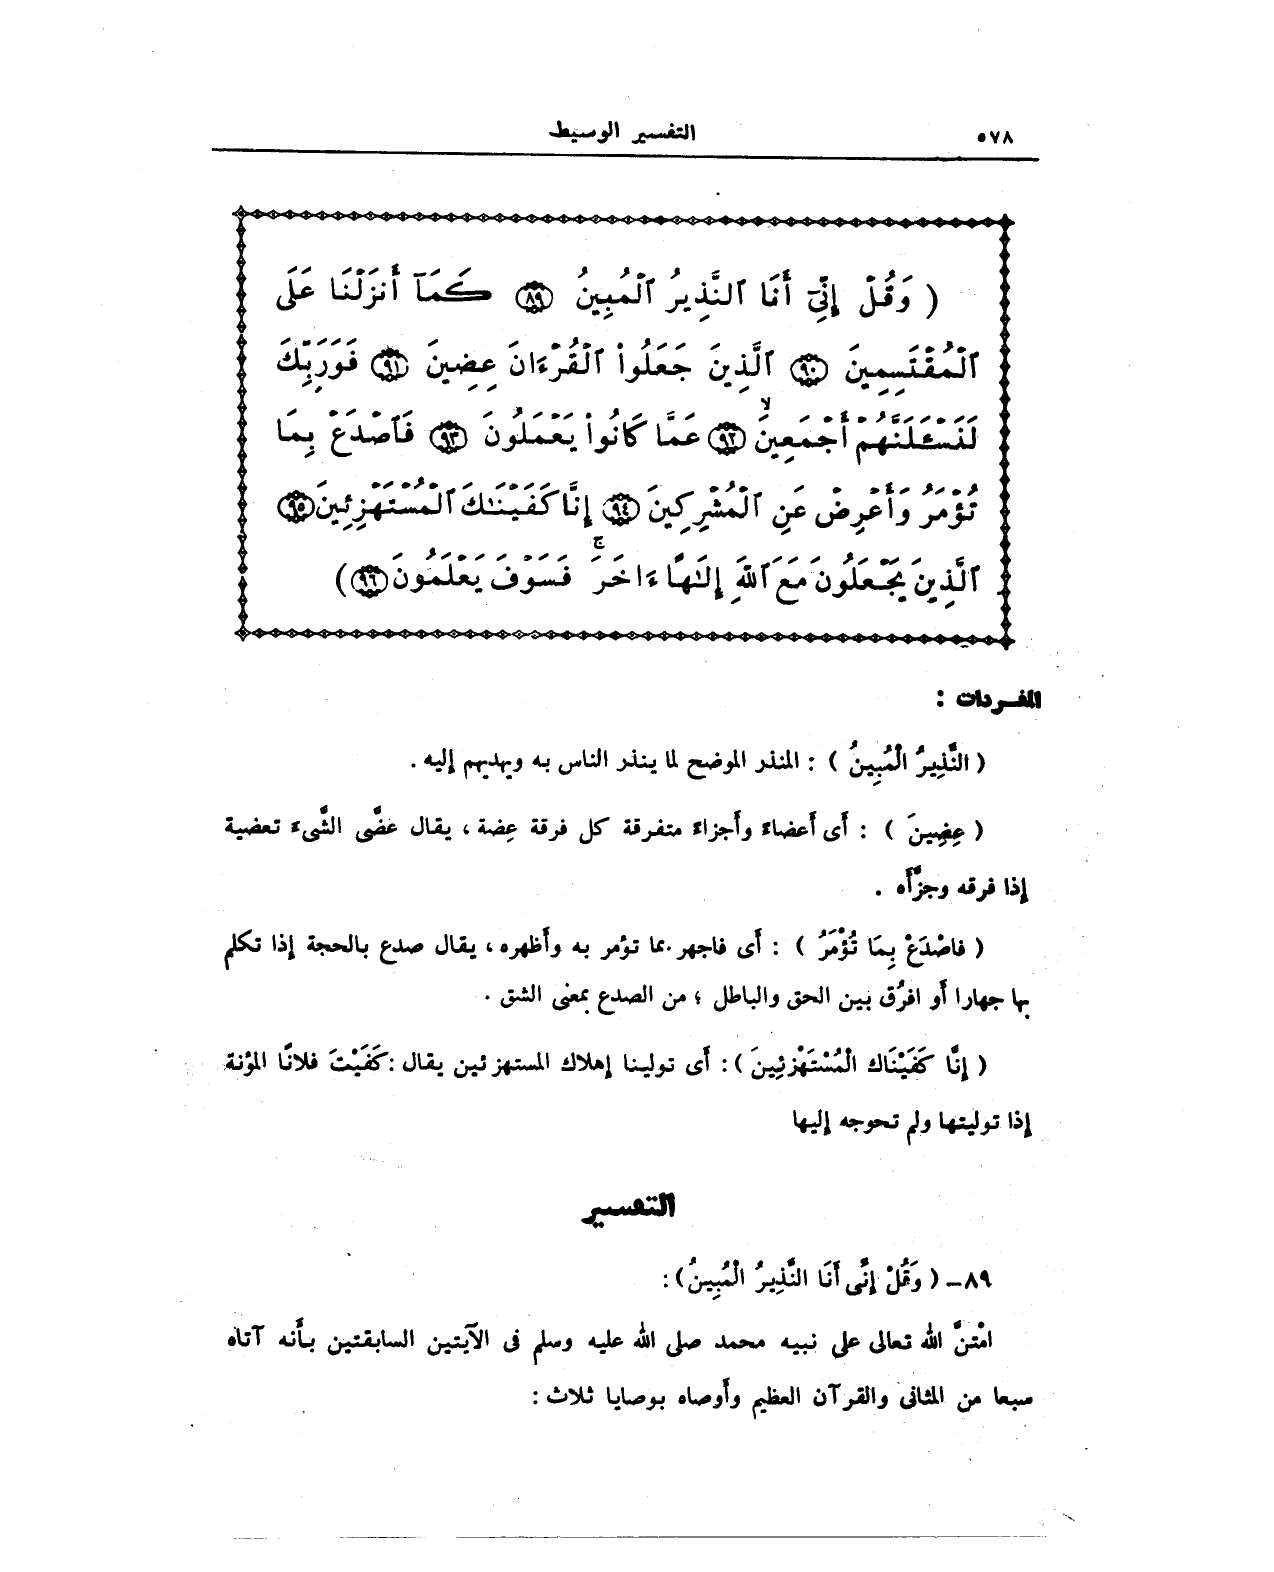 ٥٧٨
التفسير الوسيط
( وَقُلْ إِنِّىٓ أَنَا ٱلنَّذِيرُ ٱلْمُبِينُ ٨٩ كَمَآ أَنزَلْنَا عَلَى
ٱلْمُقْتَسِمِينَ ٩٠ ٱلَّذِينَ جَعَلُوا۟ ٱلْقُرْءَانَ عِضِينَ ٩١ فَوَرَبِّكَ
لَنَسْـَٔلَنَّهُمْ أَجْمَعِينَ ۙ ٩٢ عَمَّا كَانُوا۟ يَعْمَلُونَ ٩٣ فَٱصْدَعْ بِمَا
تُؤْمَرُ وَأَعْرِضْ عَنِ ٱلْمُشْرِكِينَ ٩٤ إِنَّا كَفَيْنَـٰكَ ٱلْمُسْتَهْزِئِينَ ٩٥
ٱلَّذِينَ يَجْعَلُونَ مَعَ ٱللَّهِ إِلَـٰهًا ءَاخَرَ ۚ فَسَوْفَ يَعْلَمُونَ ٩٦ )
المفـردات :
( النَّذِيرُ الْمُبِينُ ) : المنذر الموضح لما ينذر الناس به ويهديهم إليه .
( عِضِينَ ) : أَى أَعضاءً وأَجزاءً متفرقة كل فرقة عِضة ، يقال عضَّى الشَّىءَ تعضية
إذا فرقه وجزَّأَه .
( فاصْدَعْ بِمَا تُؤْمَرُ ) : أَى فاجهر بما تؤمر به وأَظهره ، يقال صدع بالحجة إذا تكلم
بها جهارا أَو افرُق بين الحق والباطل ؛ من الصدع بمعنى الشق .
( إِنَّا كَفَيْنَاكَ الْمُسْتَهْزِئِينَ ) : أَى تولينا إهلاك المستهزئين يقال : كَفَيْتَ فلانًا المؤنة
إذا توليتها ولم تحوجه إليها
التفسير
٨٩ـ ( وَقُلْ إِنَّى أَنَا النَّذِيرُ الْمُبِينُ ) :
امْتنَّ الله تعالى على نبيه محمد صلى الله عليه وسلم فى الآيتين السابقتين بـأَنه آتاه
سبعا من المثانى والقرآن العظيم وأَوصاه بوصايا ثلاث :